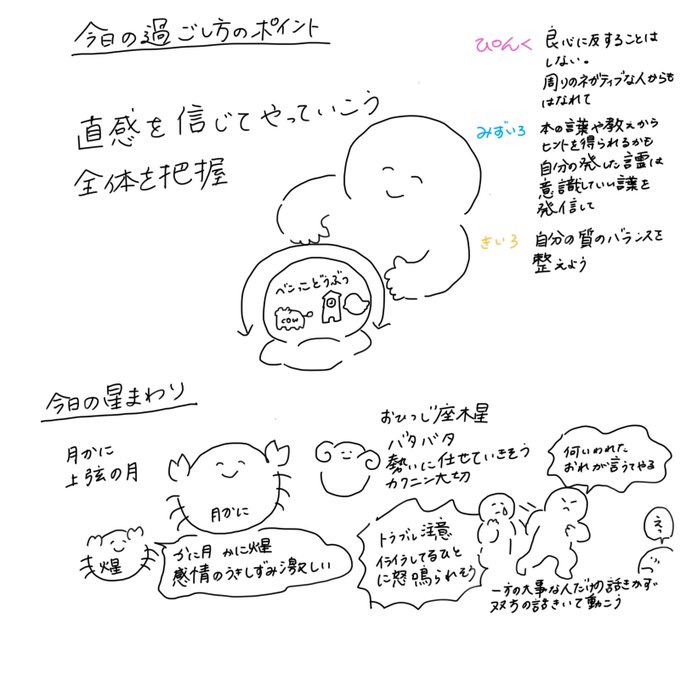 今日の過ごし方のポイント
直感を信じてやっていこう
全体を把握
ぴんく
良心に反することは
しない。
周りのネガティブな人からも
はなれて
みずいろ
本の言葉や教えから
ヒントを得られるかも
自分の発した言霊は
意識していい言葉を
発信して
きいろ
自分の質のバランスを
整えよう
ベンっこどうぶつ
cow
今日の星まわり
月かに
上弦の月
月かに
おひつじ座木星
バタバタ
勢いに任せていきそう
カクニン大切
火星
かに月 かに火星
感情のうきしずみ激しい
トラブル注意
イライラしてるひと
に怒鳴られそう
何いわれた
おれが言うてやる
えっ
一方の大事な人だけの話きかず
双方の話きいて動こう